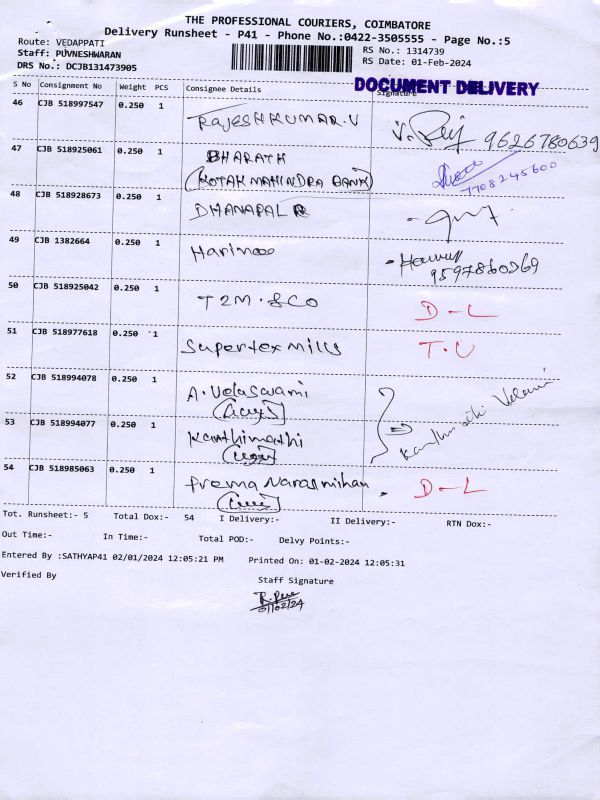 THE PROFESSIONAL COURIERS, COIMBATORE
Delivery Runsheet - P41 - Phone No.:0422-3505555 - Page No.:5
Route: VEDAPPATI
Staff: PUVNESHWARAN
DRS No.: DCJB131473905
RS No.: 1314739
RS Date: 01-Feb-2024
DOCUMENT DELIVERY
S No Consignment No Weight PCS Consignee Details Signature
46 CJB 518997547 0.250 1 RAJESHKUMAR.V V. Raj 9626780639
47 CJB 518925061 0.250 1 BHARATH
(KOTAK MAHINDRA BANK) 7708245600
48 CJB 518928673 0.250 1 DHANAPAL R
49 CJB 1382664 0.250 1 Harinee
9597860369
50 CJB 518925042 0.250 1 T2M.&CO D-L
51 CJB 518977618 0.250 1 Supertex Mills T.U
52 CJB 518994078 0.250 1 A. Velaswami
Kanthimathi Velswami
53 CJB 518994077 0.250 1 Kanthimathi
54 CJB 518985063 0.250 1 Prema Narasimhan. D-L
Tot. Runsheet:- 5 Total Dox:- 54 I Delivery:- II Delivery:- RTN Dox:-
Out Time:- In Time:- Total POD:- Delvy Points:-
Entered By :SATHYAP41 02/01/2024 12:05:21 PM Printed On: 01-02-2024 12:05:31
Verified By Staff Signature
01/02/24